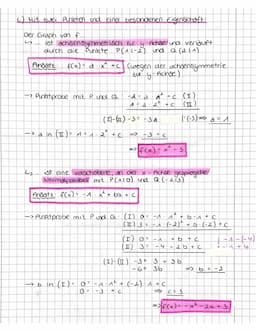 c) Mit zwei Punkten und einer besonderen Eigenschaft
Der Graph von f...
↳ ... ist achsensymmetrisch zur y-Achse und verläuft
durch die Punkte P(1|-2) und Q(2|1)
Ansatz: f(x) = a · x² + c (wegen der Achsensymmetrie
zur y-Achse)
→ Punktprobe mit P und Q: -2 = a · 1² + c (I)
1 = a · 2² + c (II)
(I)-(II) -3 = -3a |:(-3) ⇒ a = 1
→ a in (II): 1 = 1 · 2² + c ⇒ -3 = c
⇒ f(x) = x² - 3
↳ ... ist eine verschobene, an der x-Achse gespiegelte
Normalparabel mit P(1|0) und Q(-2|3)
Ansatz: f(x) = -1 · x² + bx + c
→ Punktprobe mit P und Q: (I) 0 = -1 · 1² + b · 1 + c
(II) 3 = -1 · (-2)² + b · (-2) + c
(I) 0 = -1 + b + c
(II) 3 = -4 - 2b + c
-1 - (-4)
= -1 + 4
(I)-(II) -3 = 3 + 3b
-6 = 3b ⇒ b = -2
→ b in (I): 0 = -1 · 1² + (-2) · 1 + c
0 = -3 + c ⇒ c = 3
⇒ f(x) = -x² - 2x + 3